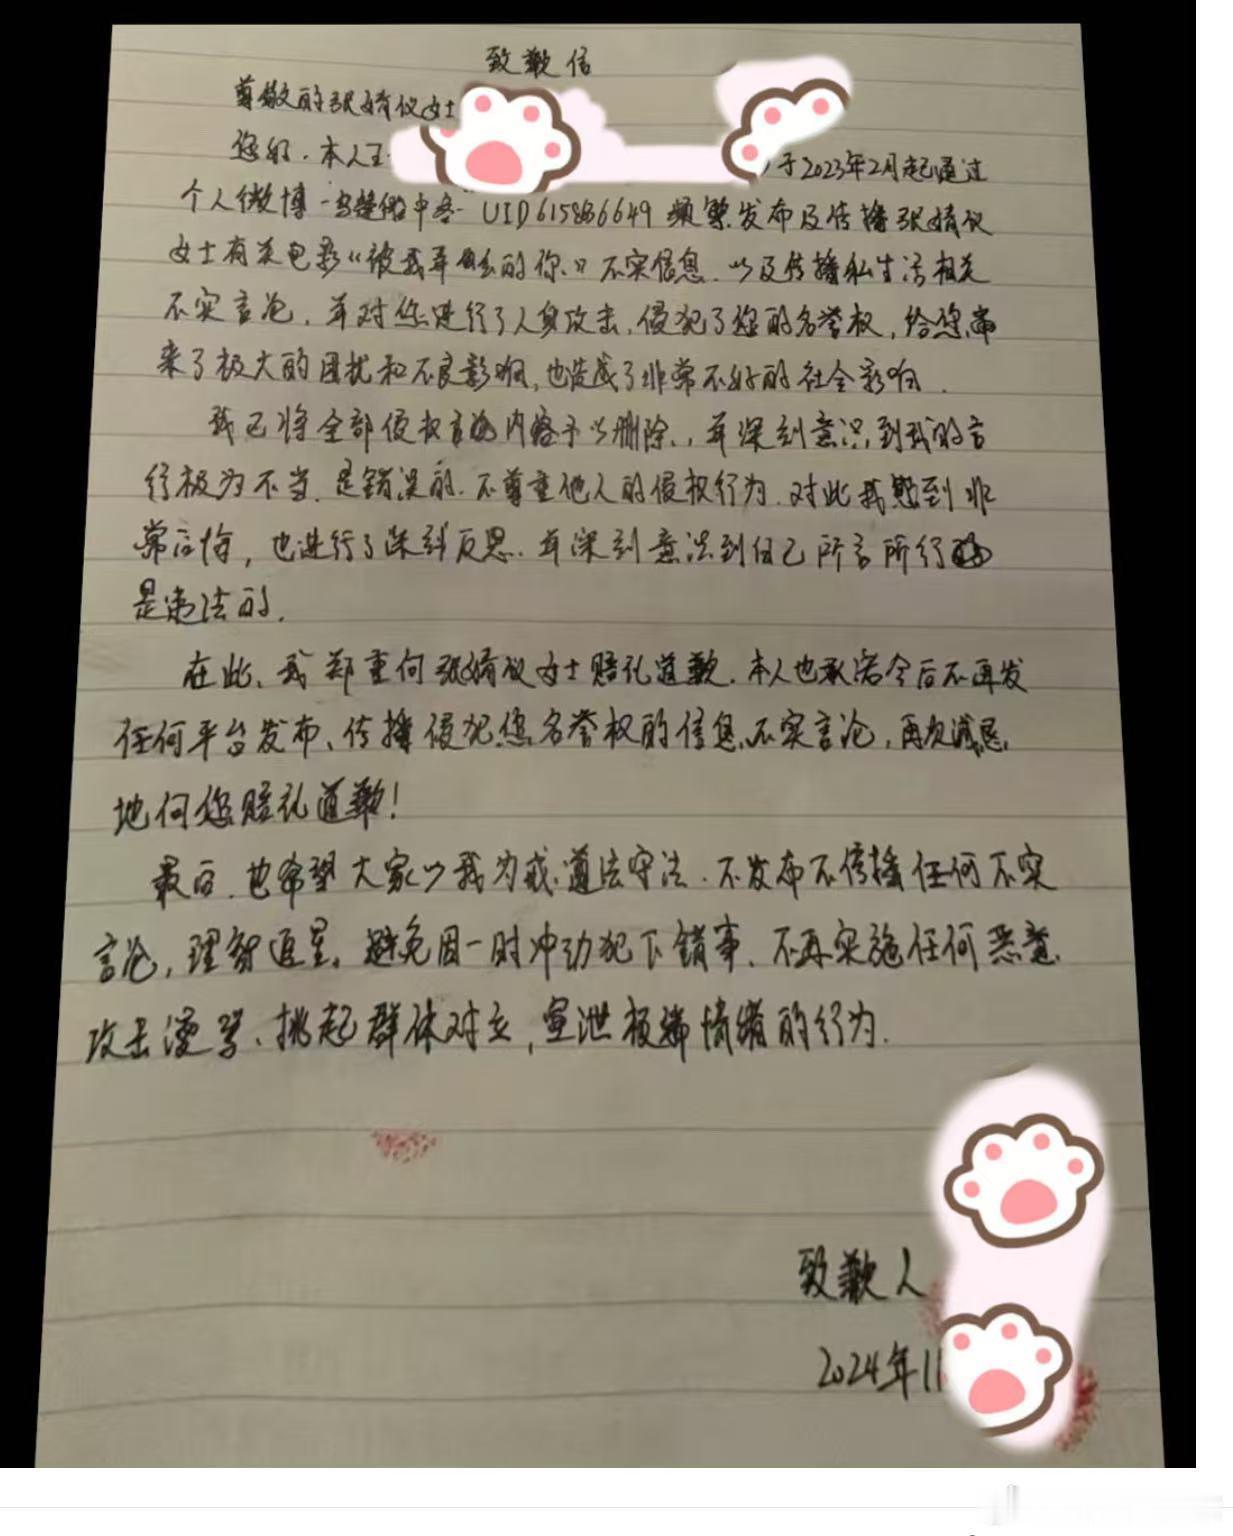 致歉信
尊敬的张婧仪女士
您好. 本人王
于2023年2月起通过
个人微博 UID615886649 频繁发布及传播张婧仪
女士有关电影《被我弄丢的你》不实信息. 以及传播私生活相关
不实言论, 并对您进行了人身攻击, 侵犯了您的名誉权, 给您带
来了极大的困扰和不良影响, 也造成了非常不好的社会影响.
我已将全部侵权言论内容予以删除., 并深刻意识到我的言
行极为不当. 是错误的. 不尊重他人的侵权行为. 对此我感到非
常后悔, 也进行了深刻反思. 并深刻意识到自己所言所行
是违法的.
在此, 我郑重向张婧仪女士赔礼道歉. 本人也承诺今后不再发
任何平台发布、传播侵犯您名誉权的信息、不实言论, 再次诚恳
地向您赔礼道歉!
最后. 也希望大家以我为戒. 遵法守法. 不发布不传播任何不实
言论, 理智追星. 避免因一时冲动犯下错事. 不再实施任何恶意
攻击谩骂、挑起群体对立, 宣泄极端情绪的行为.
致歉人
2024年11